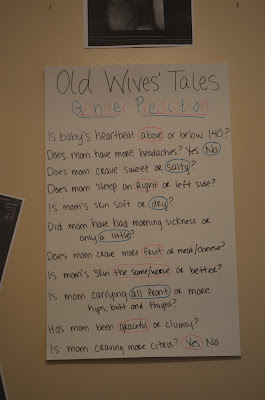 Old Wives' Tales
Gender Prediction
Is baby's heartbeat above or below 140?
Does mom have more headaches? Yes No
Does mom crave sweet or salty?
Does mom sleep on right or left side?
Is mom's skin soft or dry?
Did mom have bad morning sickness or
only a little?
Does mom crave more fruit or meat/cheese?
Is mom's skin the same/worse or better?
Is mom carrying all front or more
hips, butt and thighs?
Has mom been graceful or clumsy?
Is mom craving more citrus? Yes No